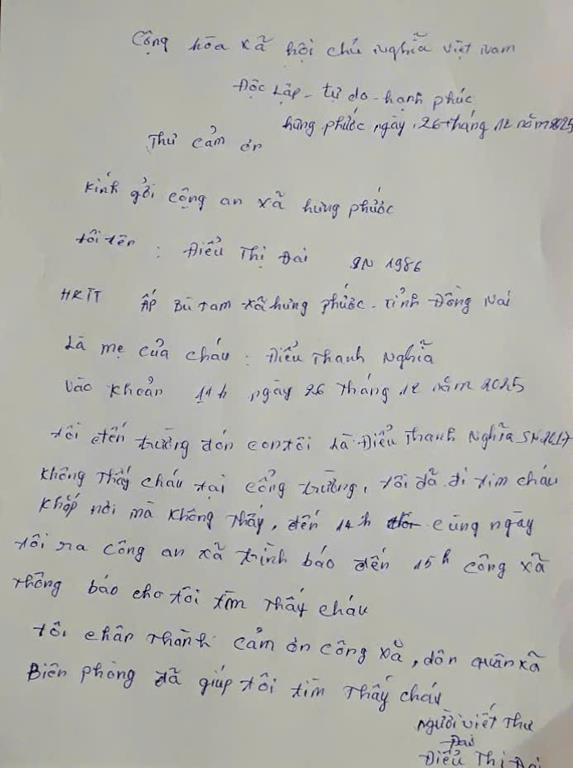 Cộng hòa xã hội chủ nghĩa việt nam
Độc Lập - tự do - hạnh phúc
hưng phước ngày 26 tháng 12 năm 2025
Thư cảm ơn
Kính gửi công an xã hưng phước
tôi tên : Điểu Thị Đai SN 1986
HKTT Ấp Bù tam xã hưng phước - tỉnh Đồng Nai
Là mẹ của cháu : Điểu Thanh Nghĩa
Vào khoản 11h ngày 26 tháng 12 năm 2025
tôi đến trường đón con tôi là Điểu Thanh Nghĩa SN 2017
Không thấy cháu tại cổng trường, tôi đã đi tìm cháu
khắp nơi mà không thấy, đến 14h cùng ngày
tôi ra công an xã trình báo đến 15h công xã
thông báo cho tôi tìm thấy cháu
tôi chân thành cảm ơn công xã, dôn quân xã
Biên phòng đã giúp tôi tìm thấy cháu
người viết thư
Đai
Điểu Thị Đai